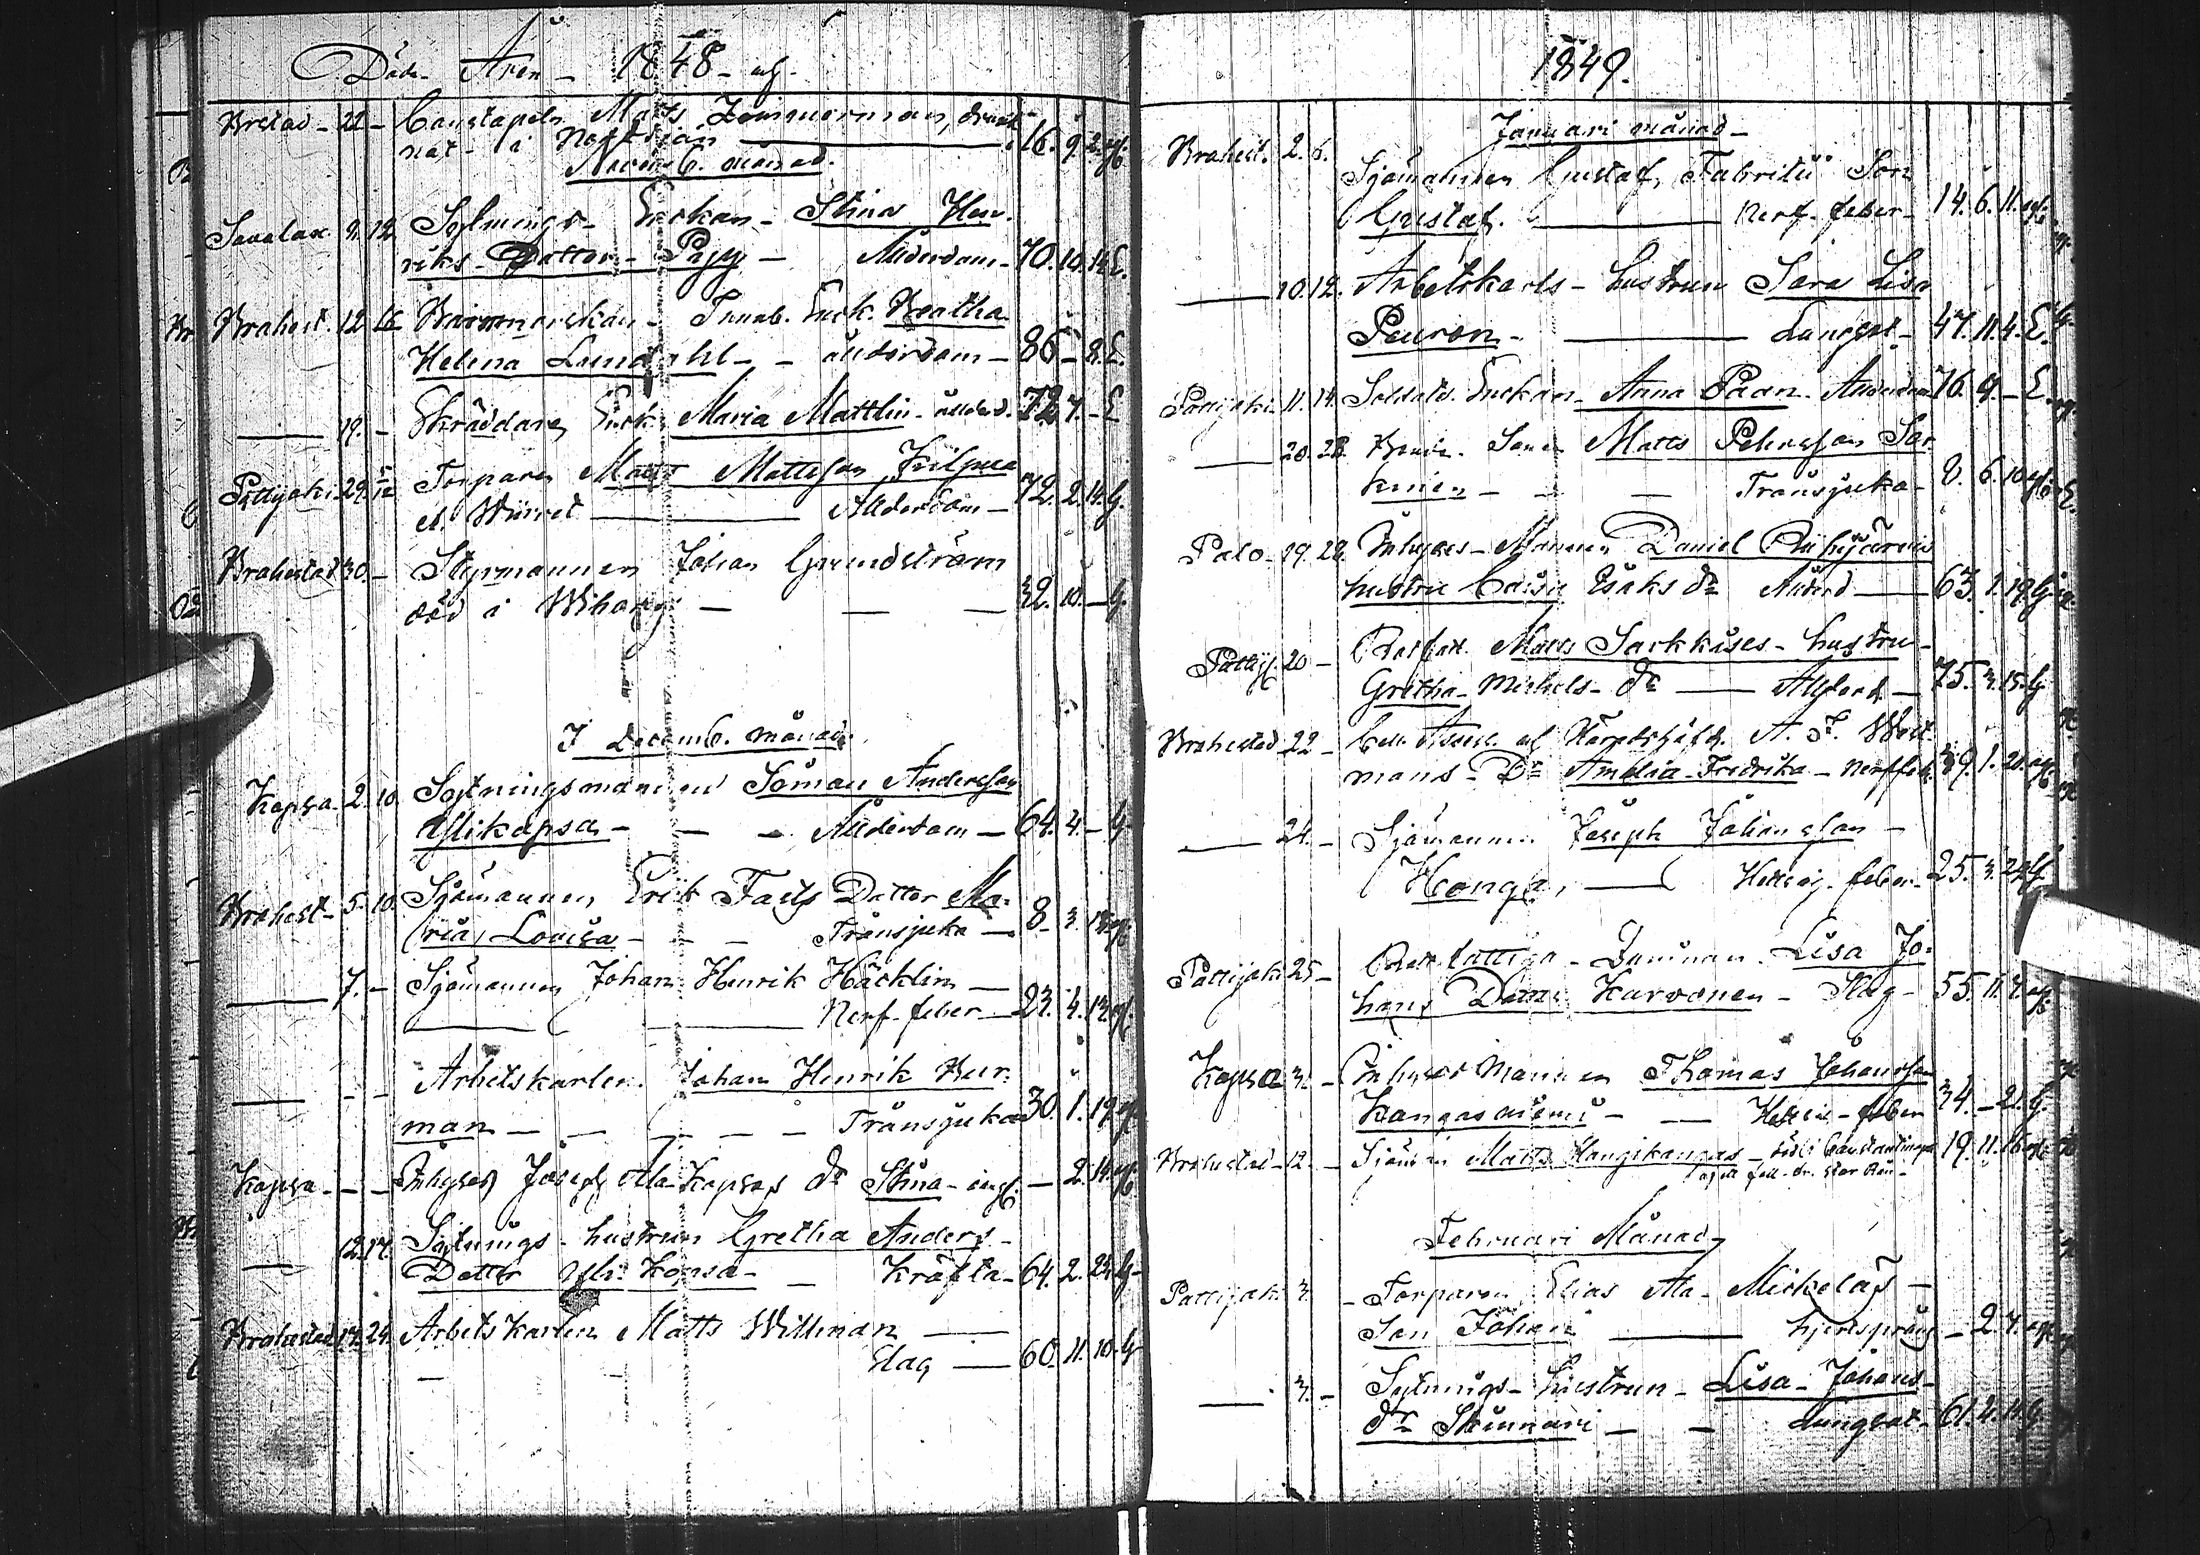 Döde Åren 1848
Brestad - 22 - Constapeln Matts Zimmerman, drunk
nat - i Nordsjön 16. 9. 2. og.
Novemb. månad.
Savolax 9. 12 Sytnings- Enkan - Stina Hen-
riks - Dotter - Papp - Ålderdom - 70. 10. 14 E.
Brahest. 12 16 Barnmorskan - Enk. Beatha
Helena Lundahl - - ålderdom - 86 - 8. E.
19. - Skräddare Enk. Maria Mattlin - ålderd. 72 7. - E
Pattijoki 29. 5/12 Torparen Matts Mattsson
Ålderdom - 72. 2. 14. G.
Brahestad 30. - Styrmannen Johan Grundström
död i Wiborg - - - 32. 10. - G.
I Decemb. månad.
Kopsa 2. 10. Sytningsmannen Simon Andersson
Ylikopsa - - - Ålderdom - 64. 4. - G
Brahest - 5. 10. Sjömannen Erik Dotter Ma-
ria Lovisa - - - Trånsjuka - 8 - 3. 18 og.
7. - Sjömannen Johan Henrik Häcklin -
Nerf-feber - 23. 4. 13. og.
- - Arbetskarlen. Johan Henrik Bur-
man - - - - - Trånsjuka 30. 1. 19. og.
Kopsa - - - Inhyses Joseph Ala-Kopsas dr Stina - - 2. 14. og.
12. 17. Sytnings - hustrun Gretha Anders -
Dotter Yli-Kopsa - - Kräfta - 64. 2. 24. G -
Brahestad 17. 24. Arbets Karlen Matts Willman
Slag - 60. 11. 10. G
1849.
Januari månad -
Brahest. 2. 6. Sjömannen Gustaf Fabritii Son
Gustaf. Nerf-feber - 14. 6. 11. og.
10. 12. Arbetskarls - hustrun Sara Lisa
Peuron - Lungsot - 47. 11. 4. E.
Pattijoki 11. 14. Soldats Enkan - Anna Paan - 76. 4. - E.
20. 28. Bonde Sonen Matts Pehrsson Sar-
kinen - - - Trånsjuka - 8. 6. 10 og.
Palo - 19. 28. Inhyses - Mannen Daniel
hustru Caisa Isaks dr Ålderd - 63. 1. 19 G.
Pattij. 20 - Matts Sarkkises - hustru -
Gretha - Michels - dr - Ålderd. - 75. 3. 15. G
Brahestad 22 - Coll. Assess. och Häradshöfd. A. F. West-
mans - Dr Amalia Fredrika - Nerffeb. 39. 1. 20. og.
24. - Sjömannen Joseph Johansson -
Honga, - Hetsig - feber - 25. 3. 22 G
Pattijoki 25 - Rotefattiga - Lisa Jo-
hans Dotter Karvonen - Slag - 55. 11. 7. og.
Kopsa 3. - Inhyses Mannen Thomas Johansson
Kangasniemi - - Hetsig - feber 34. - 21. G.
Brahestad - 12. - Sjöman Matts Hangikangas - död i Constantinopel 19. 11. 16 og.
Februari Månad
Pattijoki 3. - Torparen Elias Ala - Mickelas -
Son Johan - hjertsprång - 2 7. og.
3. - Sytnings - hustrun - Lisa - Johans -
dr Skinnari - - Lungsot - 61. 4. 14. G.